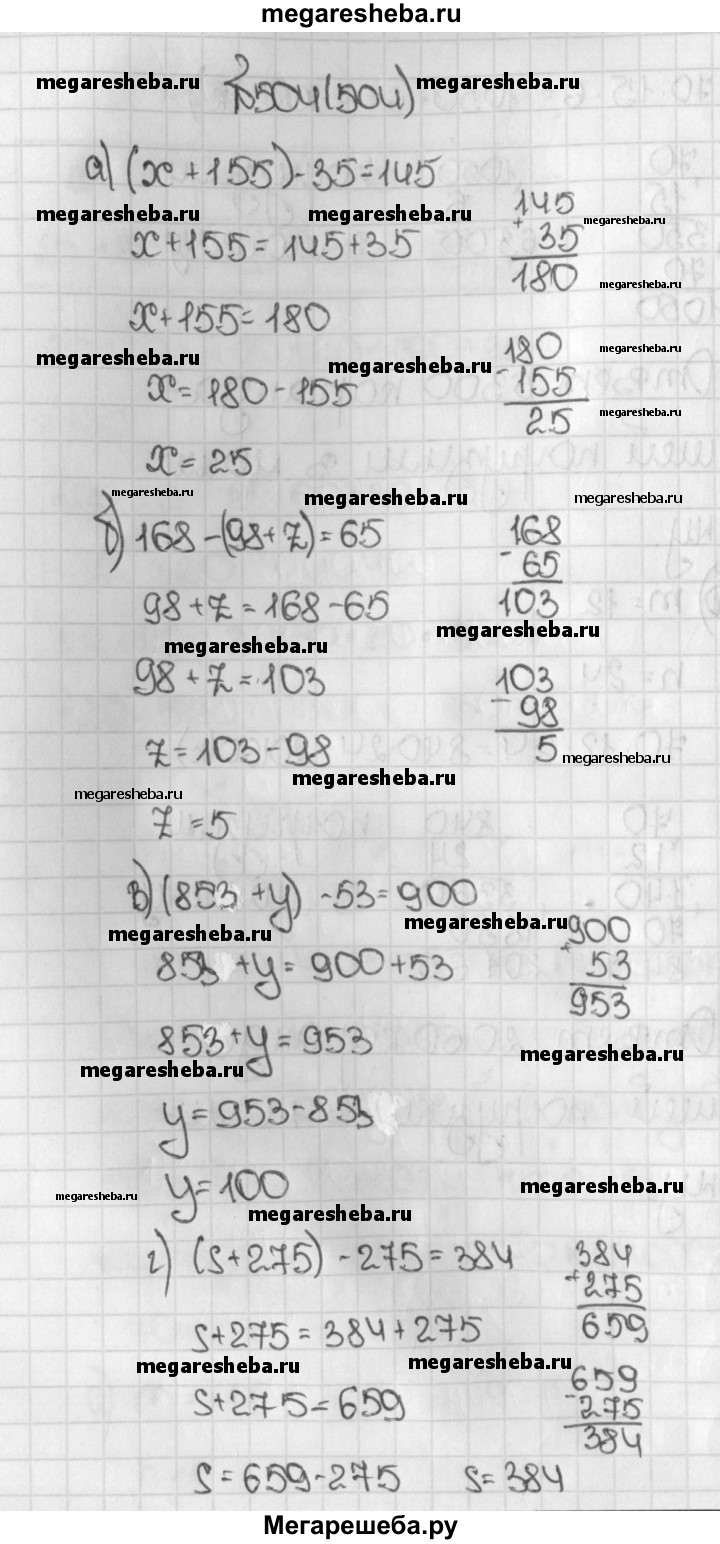 megaresheba.ru
megaresheba.ru №504(504) megaresheba.ru
а) (x+155)-35=145
megaresheba.ru megaresheba.ru 145 megaresheba.ru
x+155=145+35 + 35
180 megaresheba.ru
x+155=180
megaresheba.ru megaresheba.ru 180 megaresheba.ru
x=180-155 -155
25 megaresheba.ru
x=25
megaresheba.ru megaresheba.ru megaresheba.ru
б) 168-(98+z)=65 168
- 65
98+z=168-65 103
megaresheba.ru megaresheba.ru
98+z=103 103
- 98
z=103-98 5 megaresheba.ru
megaresheba.ru megaresheba.ru
z=5
в) (853+y)-53=900
megaresheba.ru megaresheba.ru 900
853+y=900+53 + 53
953
853+y=953
megaresheba.ru megaresheba.ru
y=953-853
megaresheba.ru y=100 megaresheba.ru
megaresheba.ru
г) (s+275)-275=384 384
+275
s+275=384+275 659
megaresheba.ru megaresheba.ru
s+275=659 659
-275
384
s=659-275 s=384
Мегарешеба.ру